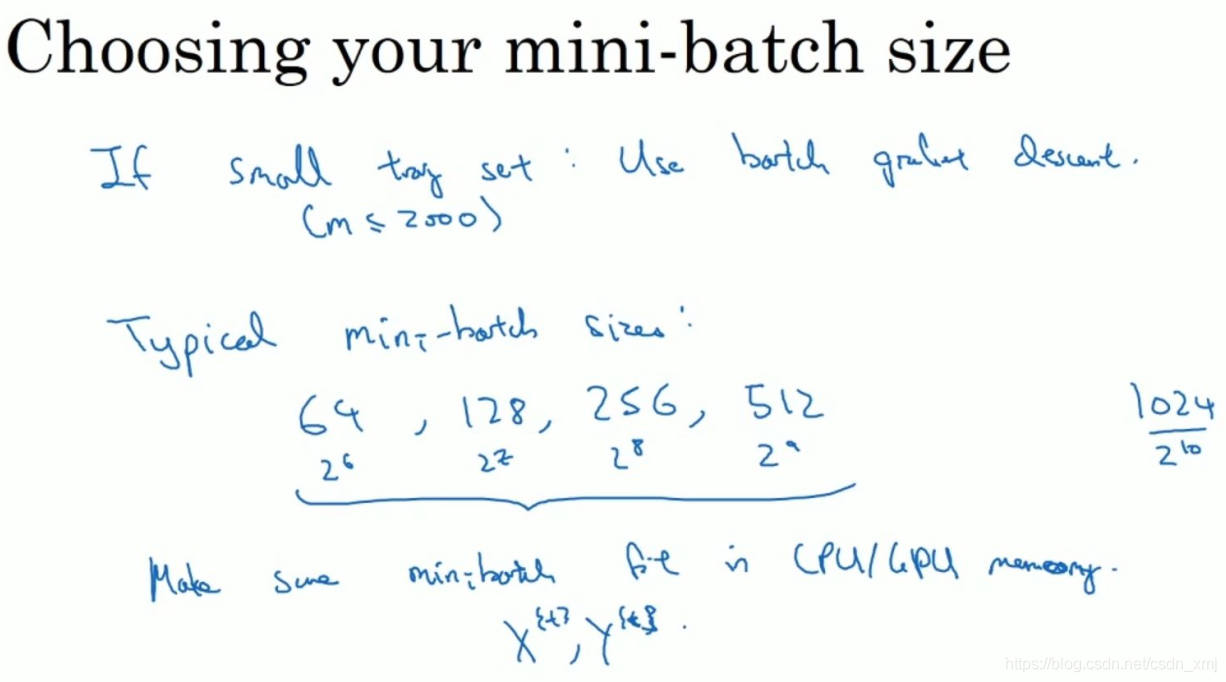 Choosing your mini-batch size
If small tray set : Use batch gradient descent.
(m ≤ 2000)
Typical mini-batch sizes:
64, 128, 256, 512
2^6 2^7 2^8 2^9
1024
2^10
Make sure minibatch fit in CPU/GPU memory.
X^{t}, Y^{t}.
https://blog.csdn.net/csdn_xmj